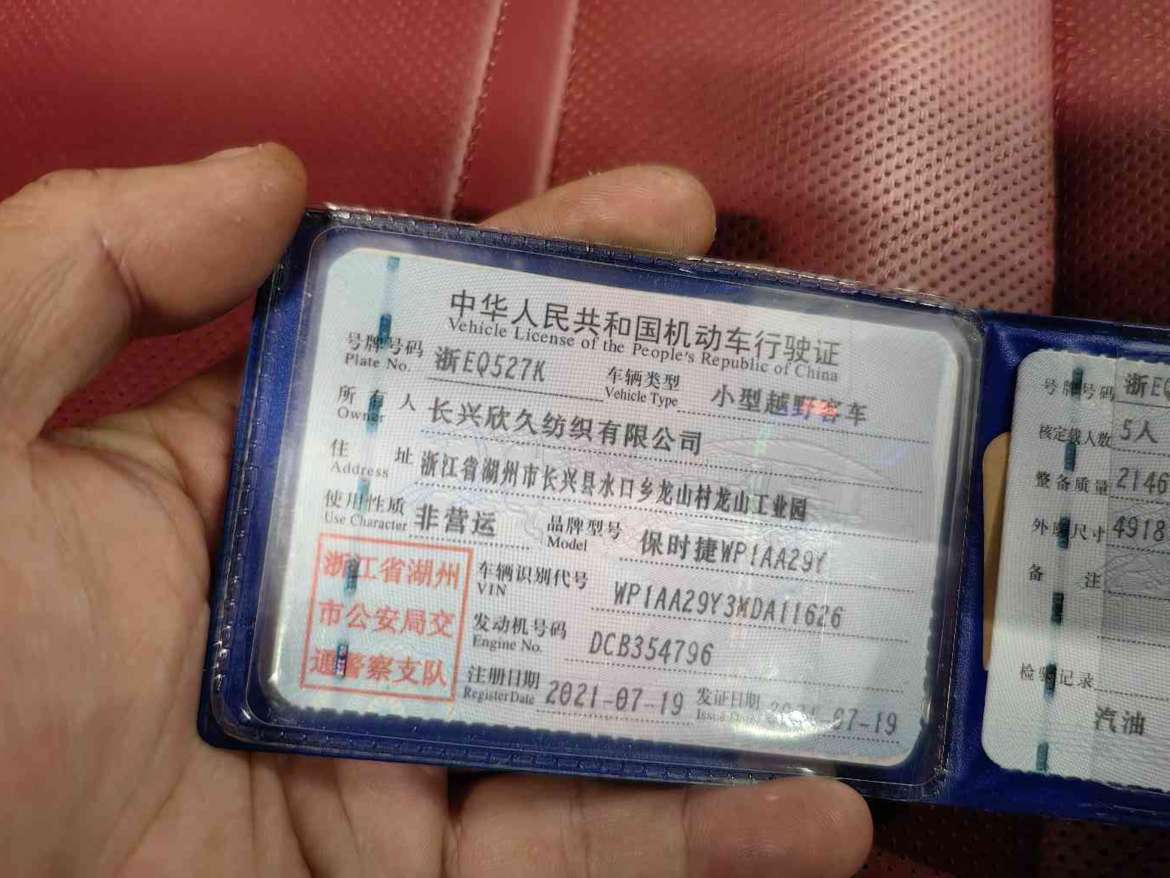 中华人民共和国机动车行驶证
Vehicle License of the People's Republic of China
号牌号码 浙EQ527K 车辆类型 小型越野客车
Plate No. Vehicle Type
所有人 长兴欣久纺织有限公司
Owner
住址 浙江省湖州市长兴县水口乡龙山村龙山工业园
Address
使用性质 非营运 品牌型号 保时捷WP1AA29Y
Use Character Model
浙江省湖州
市公安局交
通警察支队
车辆识别代号 WP1AA29Y3MDA11626
VIN
发动机号码 DCB354796
Engine No.
注册日期 2021-07-19 发证日期 2021-07-19
Register Date Issue Date
号牌号码 浙EQ
核定载人数 5人
整备质量 2146
外廓尺寸 4918
备注
检验记录
汽油